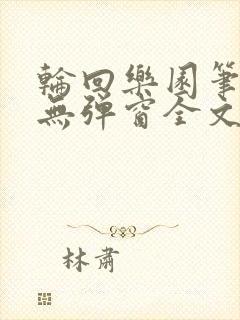 輪回樂園筆
無彈窗全文
林肅